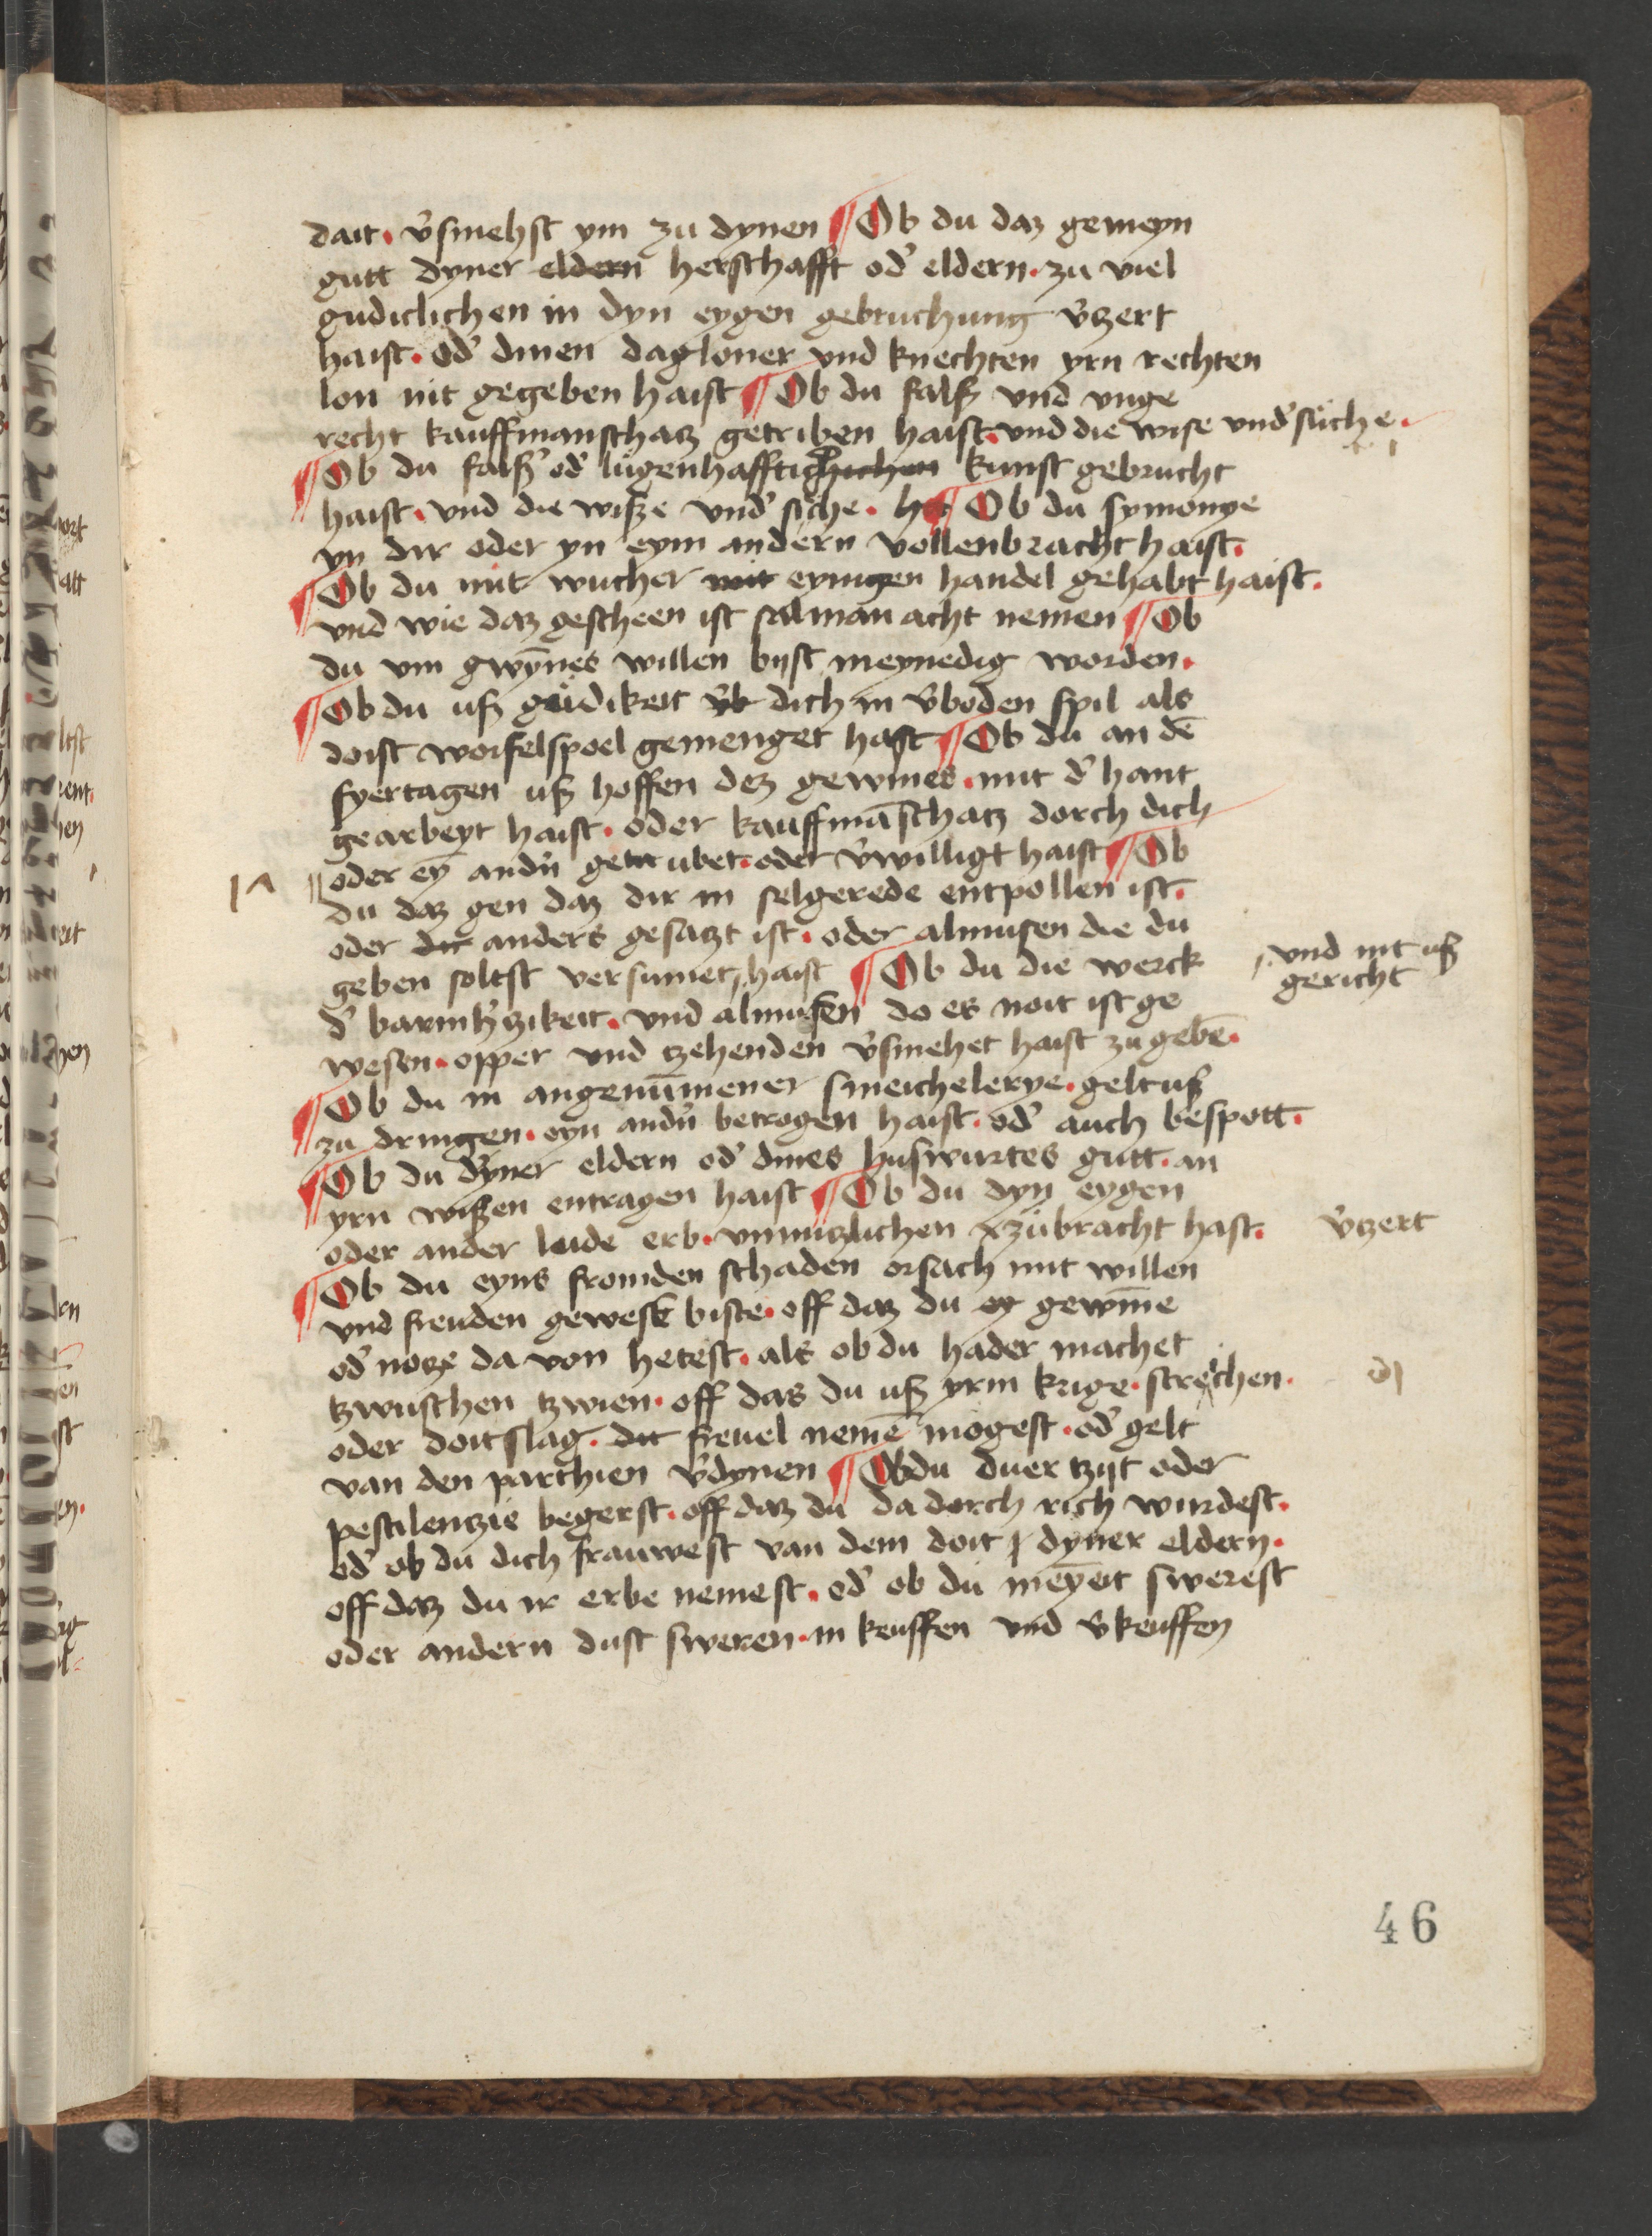 dait · v͛smehst ym zu dynen ¶ Ob du daz gemeyn
gutt dyner eldern herschafft od͛ eldern · zu viel
gudiclichen in dyn eygen gebruchung v͛tzert
haist · od͛ dinen dagloner vnd knechten yrn rechten
lon nit gegeben haist ¶ Ob du falsz vnd vnge
recht kauffmanschatz getriben haist · vnd die wise vnd͛ suche ·
¶ Ob du falsz od͛ lugenhafftich kunst gebrucht
haist · vnd die wisze vnd͛ siche · ¶ Ob du symonye
yn dir oder yn eym andern vollenbracht haist ·
¶ Ob du mit wucher mit eynigen handel gehabt haist ·
vnd wie daz gescheen ist salman acht nemen ¶ Ob
du vm gwȳnes willen bijst meynedig worden ·
¶ Ob du usz gudikeit dich in v͛boden spil als
doist worfelspoel gemenget hast ¶ Ob du an dē
fyertagen usz hoffen dez gewines · mit d͛ hant
gearbeyt haist · oder kauffmāschatz dorch dich
oder eȳ andn͛ ubet · oder v͛williget haist ¶ Ob
du daz gen daz dir in selgerede entpollen ist ·
oder dir anders gesatzt ist · oder almusen die du
geben soltst versumet haist ¶ Ob du die werck
vnd nit usz
gericht
d͛ barmh͛tzikeit · vnd almusen do es noit ist ge
wesen · opper vnd tzehenden v͛smehet haist zu gebē ·
¶ Ob du in angenūmener smeichelerye · gelt usz
zu dringen · eyn andn͛ betrogen haist · od͛ auch bespott ·
¶ Ob du dyner eldern od͛ dines huswirtes gutt · an
yrn wiszen entragen haist ¶ Ob du dyn eygen
oder ander lude erb · vnnutzlichen zubracht hast · v͛tzert
¶ Ob du eyns fromden schaden orsach mit willen
vnd freuden gewest biste · off daz du gewīne
od͛ notze da von hetest · als ob du hader machet
tzwuschen tzwien · off das du usz yrm krige · strechen ·
oder doitslag · dit freuel nemē mogest · od͛ gelt
van den parthien v͛dynen ¶ Ob du duer tzijt oder
pestilentzie begerst · off daz du da dorch rich wurdest ·
od͛ ob du dich frauwest van dem doit dyner eldern ·
off daz du ir erbe nemest · od͛ ob du meȳeit swerest
oder andern dust sweren · in keuffen vnd v͛keuffen
46